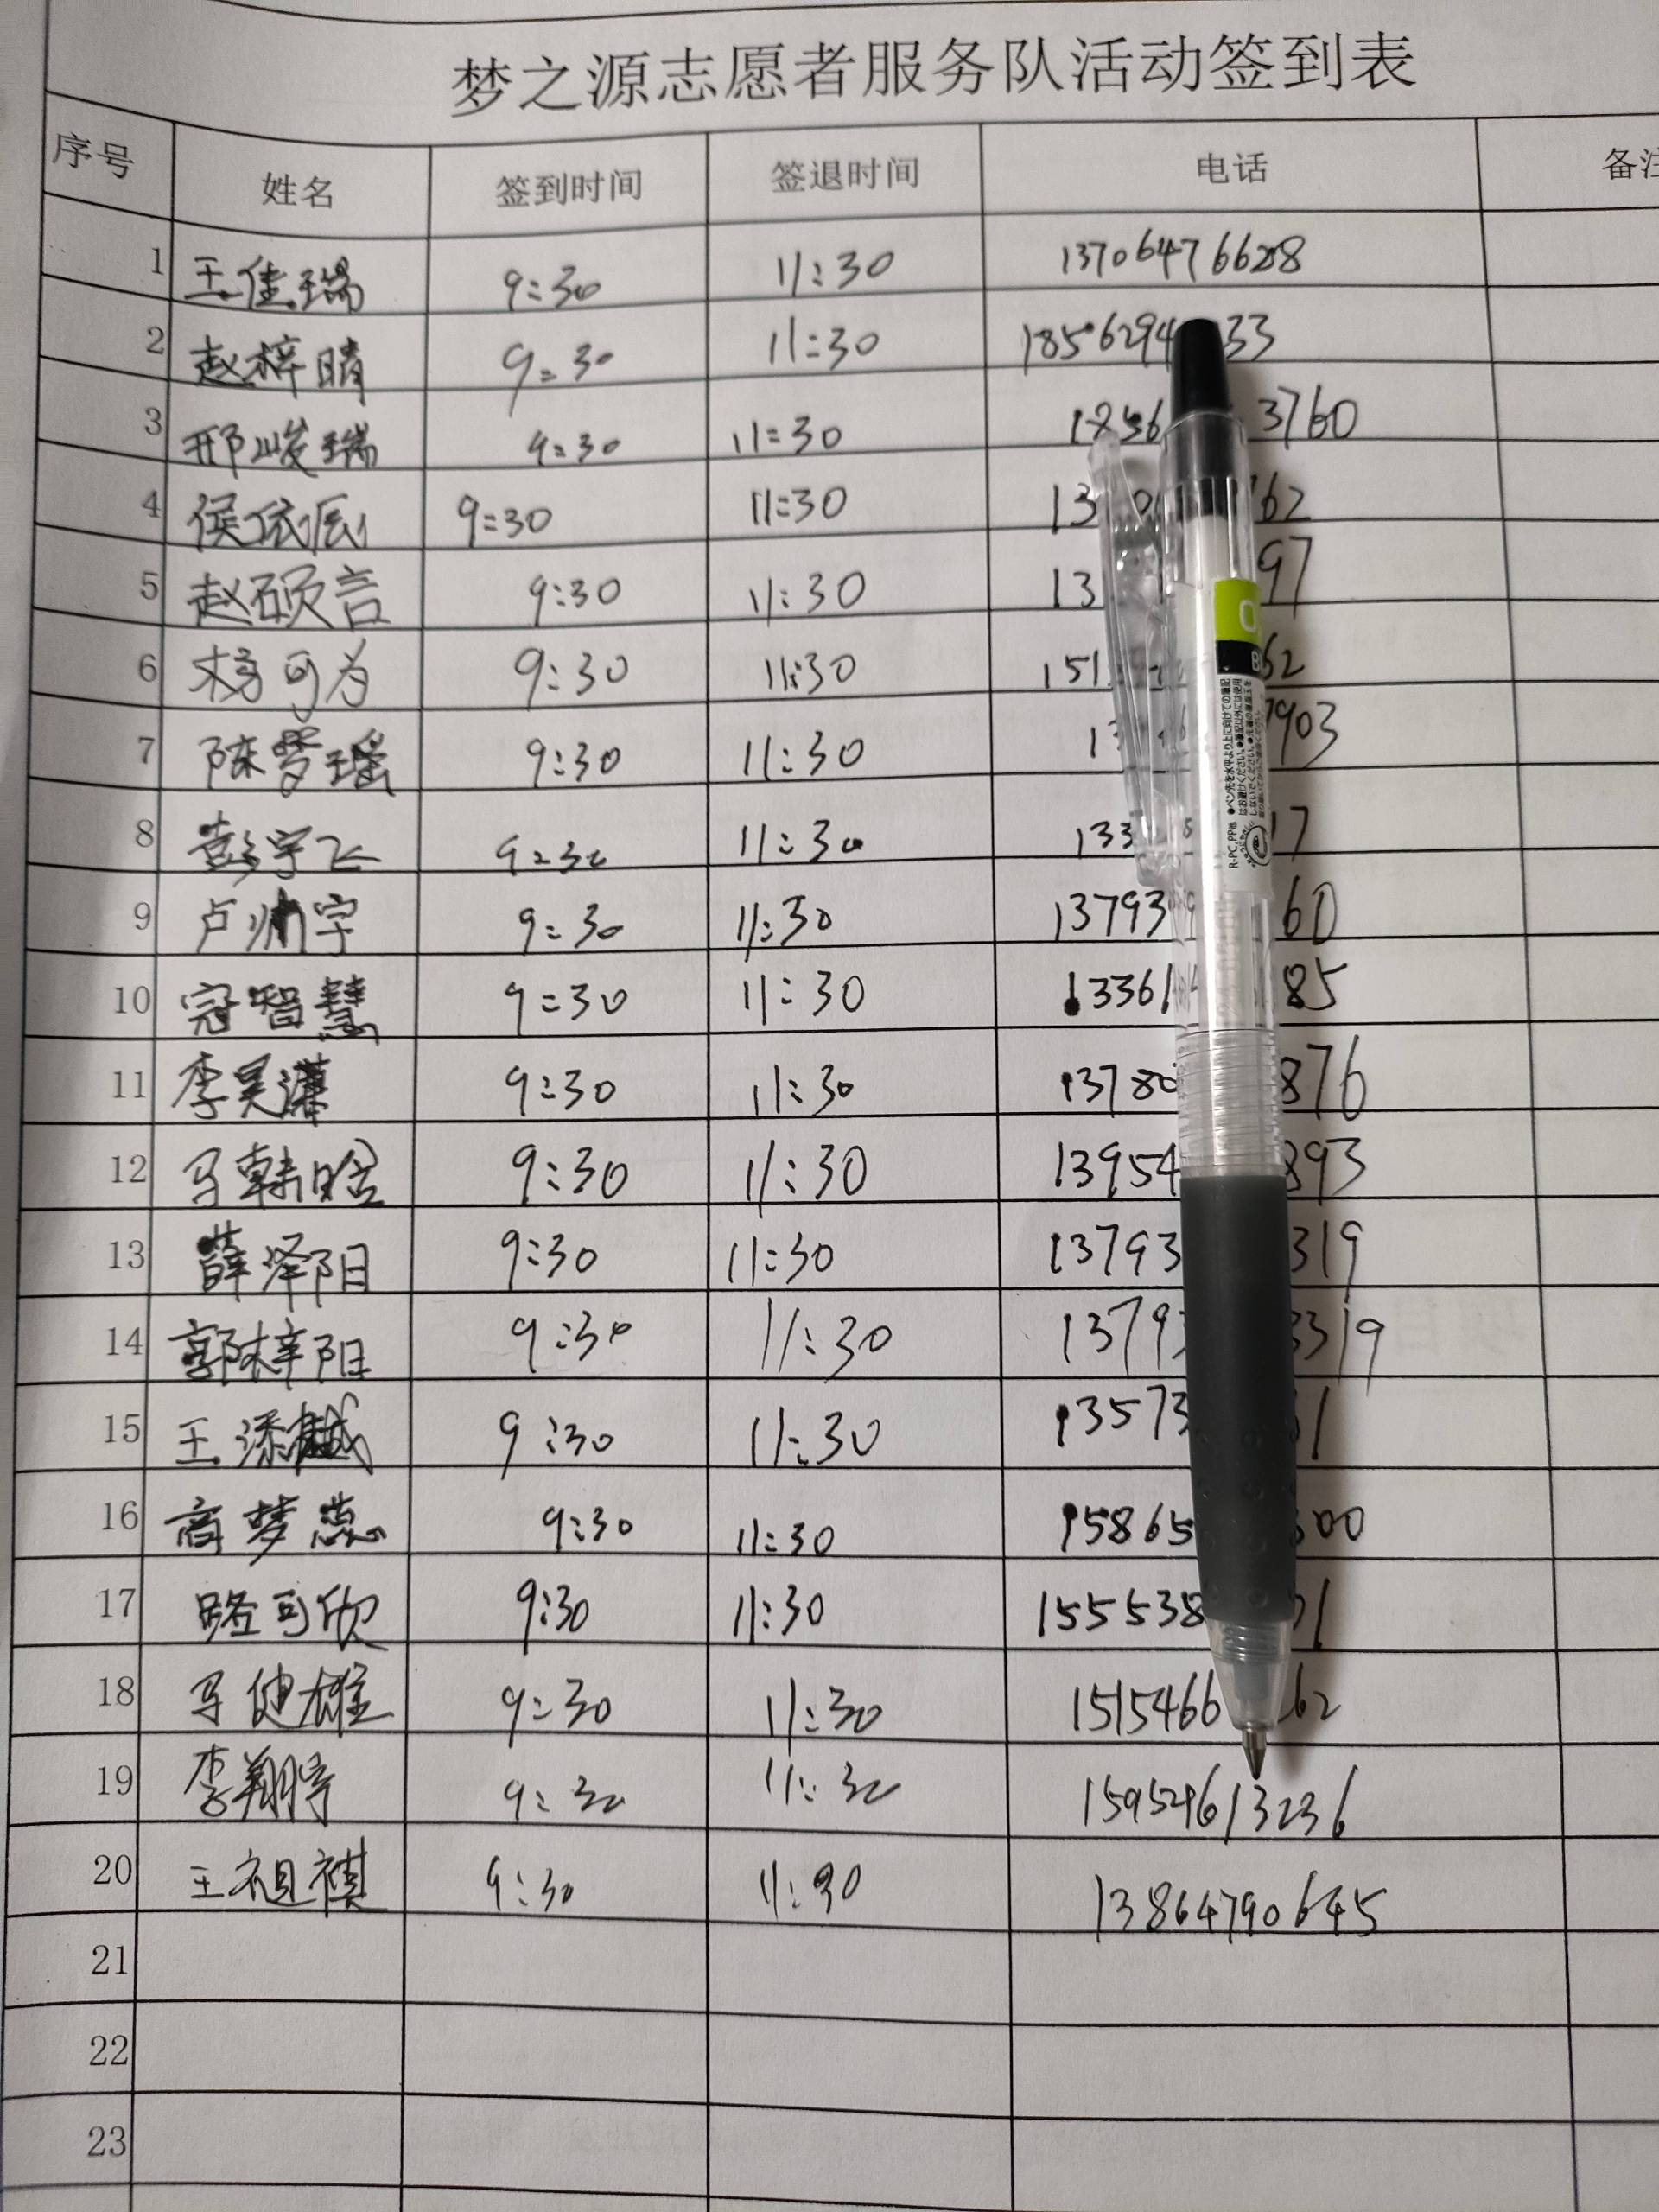 梦之源志愿者服务队活动签到表
序号 姓名 签到时间 签退时间 电话 备注
1 王佳瑞 9:30 11:30 13706476628
2 赵梓晴 9:30 11:30 18506294 33
3 邢峻瑞 9:30 11:30 1856 3760
4 侯依辰 9:30 11:30 13 62
5 赵硕言 9:30 11:30 13 97
6 杨可为 9:30 11:30 151 62
7 陈梦瑶 9:30 11:30 1 7903
8 彭宇飞 9:30 11:30 133 17
9 卢帅宇 9:30 11:30 13793 60
10 智慧 9:30 11:30 13361 85
11 李昊潇 9:30 11:30 13780 876
12 马韩晗 9:30 11:30 13954 893
13 薛泽阳 9:30 11:30 13793 319
14 郭梓阳 9:30 11:30 13793 3319
15 王添越 9:30 11:30 13573 31
16 商梦蕊 9:30 11:30 15865 300
17 路可欣 9:30 11:30 155538 01
18 马健雄 9:30 11:30 1515466 62
19 李翔宇 9:30 11:30
20 王祖祺 9:30 11:30 13864790645
21
22
23